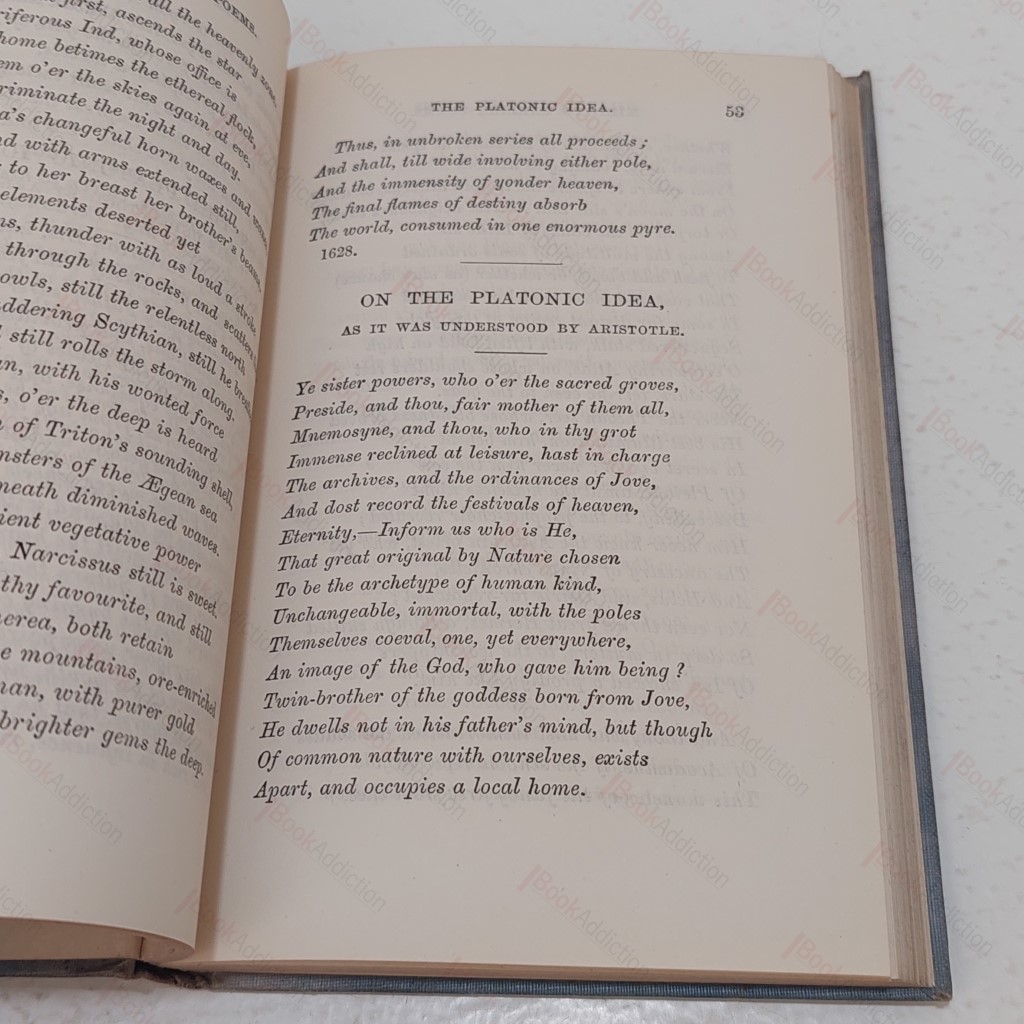 POEMS.
all the heavenly zone.
first, ascends the star
riferous Ind, whose office is
home betimes the ethereal flock,
em o'er the skies again at eve,
riminate the night and day.
a's changeful horn waxes and wanes
nd with arms extended still,
to her breast her brother's beams.
elements deserted yet
ns, thunder with as loud a stroke
through the rocks, and scatters
owls, still the relentless north
ddering Scythian, still he breathes
still rolls the storm along.
an, with his wonted force
s, o'er the deep is heard
n of Triton's sounding shell,
nsters of the Ægean sea
neath diminished waves.
ient vegetative power
Narcissus still is sweet.
thy favourite, and still
herea, both retain
e mountains, ore-enriched
nan, with purer gold
brighter gems the deep.
THE PLATONIC IDEA. 53
Thus, in unbroken series all proceeds;
And shall, till wide involving either pole,
And the immensity of yonder heaven,
The final flames of destiny absorb
The world, consumed in one enormous pyre.
1628.
ON THE PLATONIC IDEA,
AS IT WAS UNDERSTOOD BY ARISTOTLE.
Ye sister powers, who o'er the sacred groves,
Preside, and thou, fair mother of them all,
Mnemosyne, and thou, who in thy grot
Immense reclined at leisure, hast in charge
The archives, and the ordinances of Jove,
And dost record the festivals of heaven,
Eternity,—Inform us who is He,
That great original by Nature chosen
To be the archetype of human kind,
Unchangeable, immortal, with the poles
Themselves coeval, one, yet everywhere,
An image of the God, who gave him being?
Twin-brother of the goddess born from Jove,
He dwells not in his father's mind, but though
Of common nature with ourselves, exists
Apart, and occupies a local home.
BookAddiction